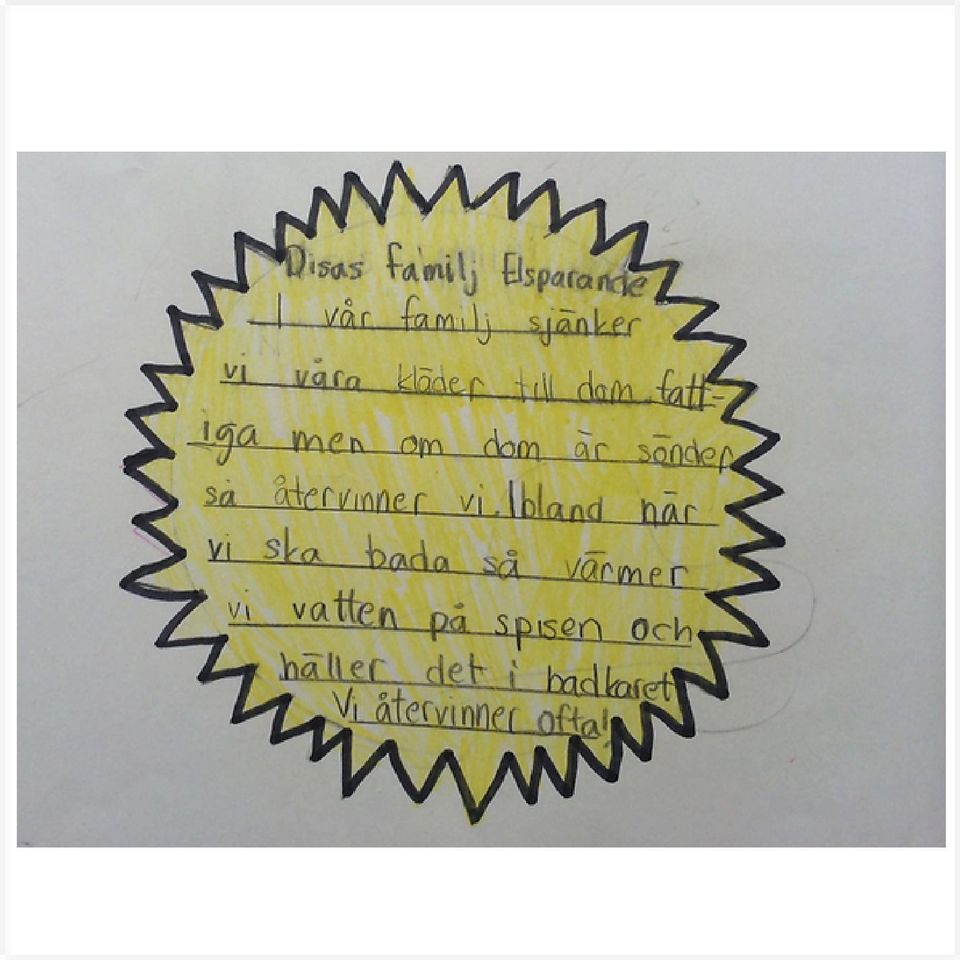 Disas familj Elsparande
I vår familj sjänker
vi våra kläder till dom fatt-
iga men om dom är sönder
så återvinner vi. Ibland när
vi ska bada så värmer
vi vatten på spisen och
häller det i badkaret
Vi återvinner ofta!